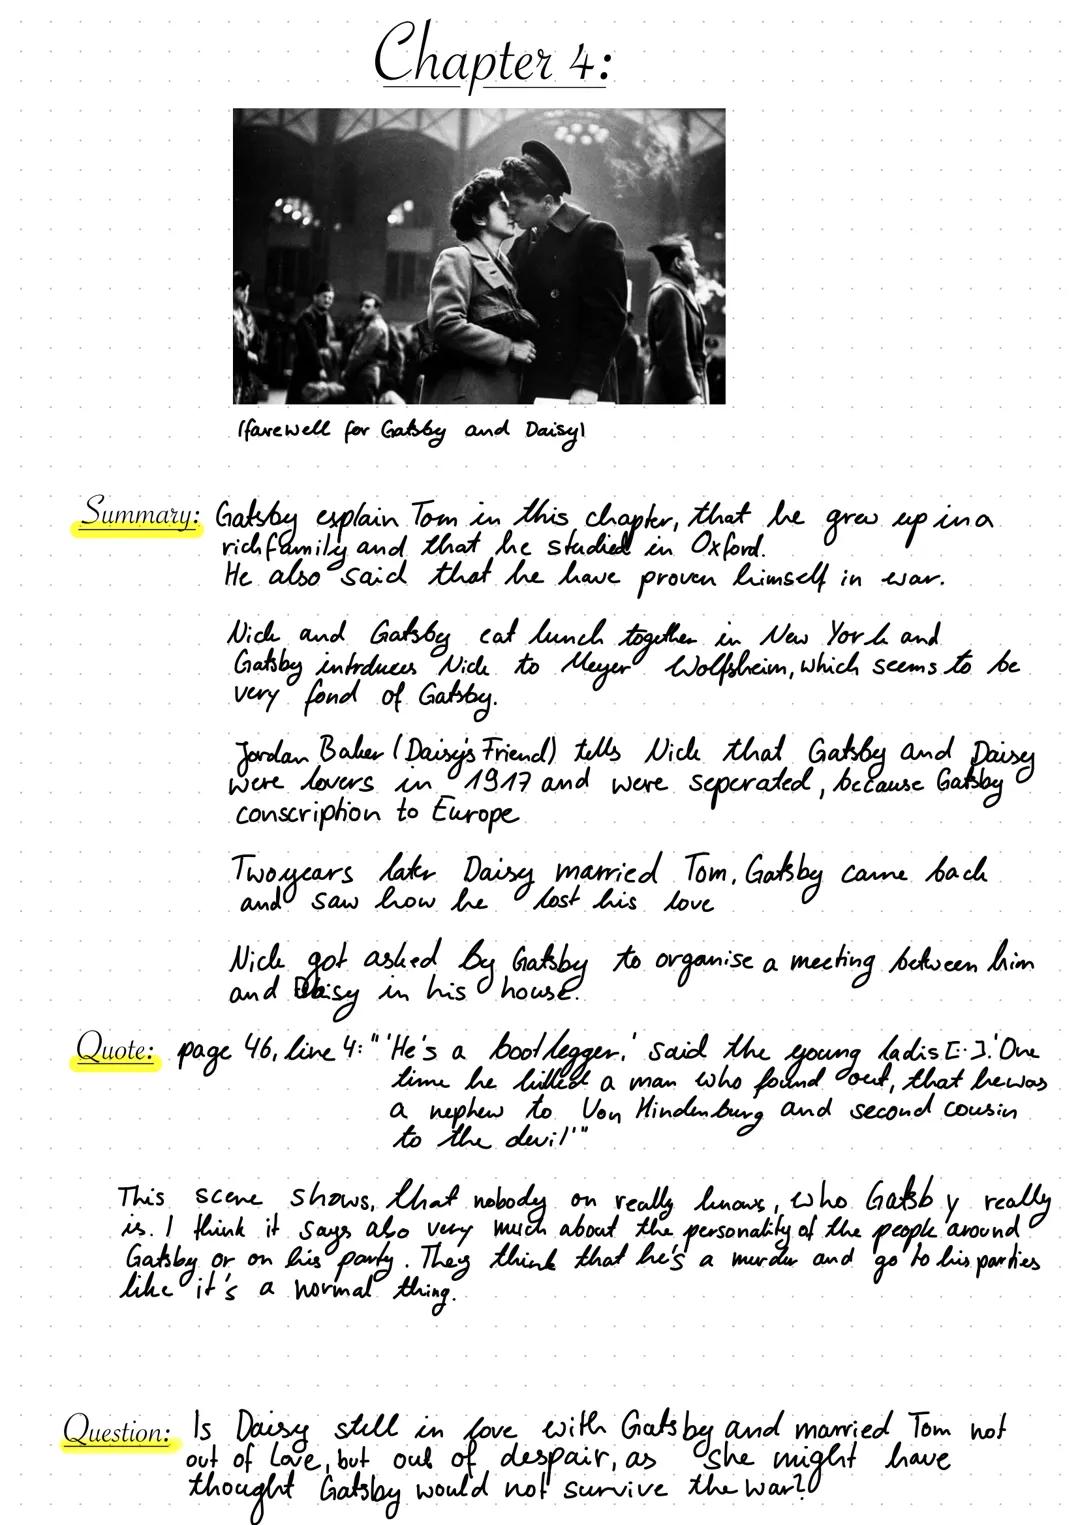 Chapter 4:
(farewell for Gatsby and Daisy)
Summary: Gatsby esplain Tom in this chapter, that he grew up in a
rich family and that he studied in Oxford.
He also said that he have proven himself in war.
Nick and Gatsby eat lunch together in New York and
Gatsby introduces Nick to Meyer Wolfsheim, which seems to be
very fond of Gatsby.
Jordan Baker (Daisy's Friend) tells Nick that Gatsby and Daisy
were lovers in 1917 and were seperated, because Gatsby
conscription to Europe
Two years later Daisy married Tom. Gatsby came back
and saw how he lost his love
Nick got asked by Gatsby to organise a meeting between him
and Daisy in his house.
Quote: page 46, line 4: "'He's a bootlegger,' said the young ladis [..]. 'One
time he killed a man who found out, that he was
a nephew to Von Hindenburg and second cousin
to the devil'"
This scene shows, that nobody on really knows, who Gatsby really
is. I think it says also very much about the personality of the people around
Gatsby or on his party. They think that he's a murder and go to his parties
like it's a normal thing.
Question: Is Daisy still in love with Gatsby and married Tom not
out of Love, but out of despair, as she might have
thought Gatsby would not survive the war?